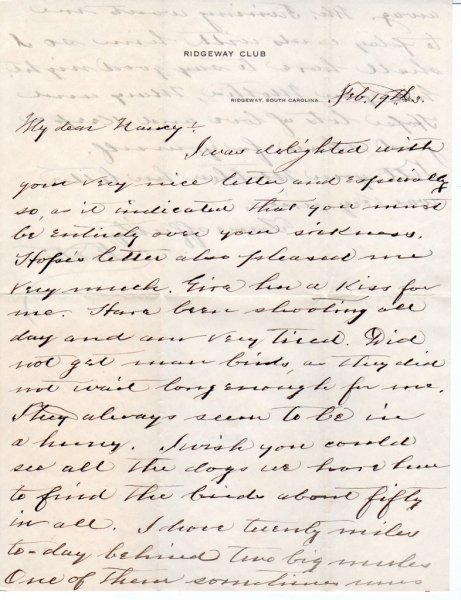 RIDGEWAY CLUB
RIDGEWAY, SOUTH CAROLINA. Feb. 19th
My dear Nancy!
I was delighted with
your very nice letter, and especially
so, as it indicated that you must
be entirely over your sickness.
Hope's letter also pleased me
very much. Give her a Kiss for
me. Have been shooting all
day and am very tired. Did
not get many birds, as they did
not wait long enough for me.
They always seem to be in
a hurry. I wish you could
see all the dogs we have here
to find the birds about fifty
in all. I drove twenty miles
to-day behind two big mules
One of them sometimes runs